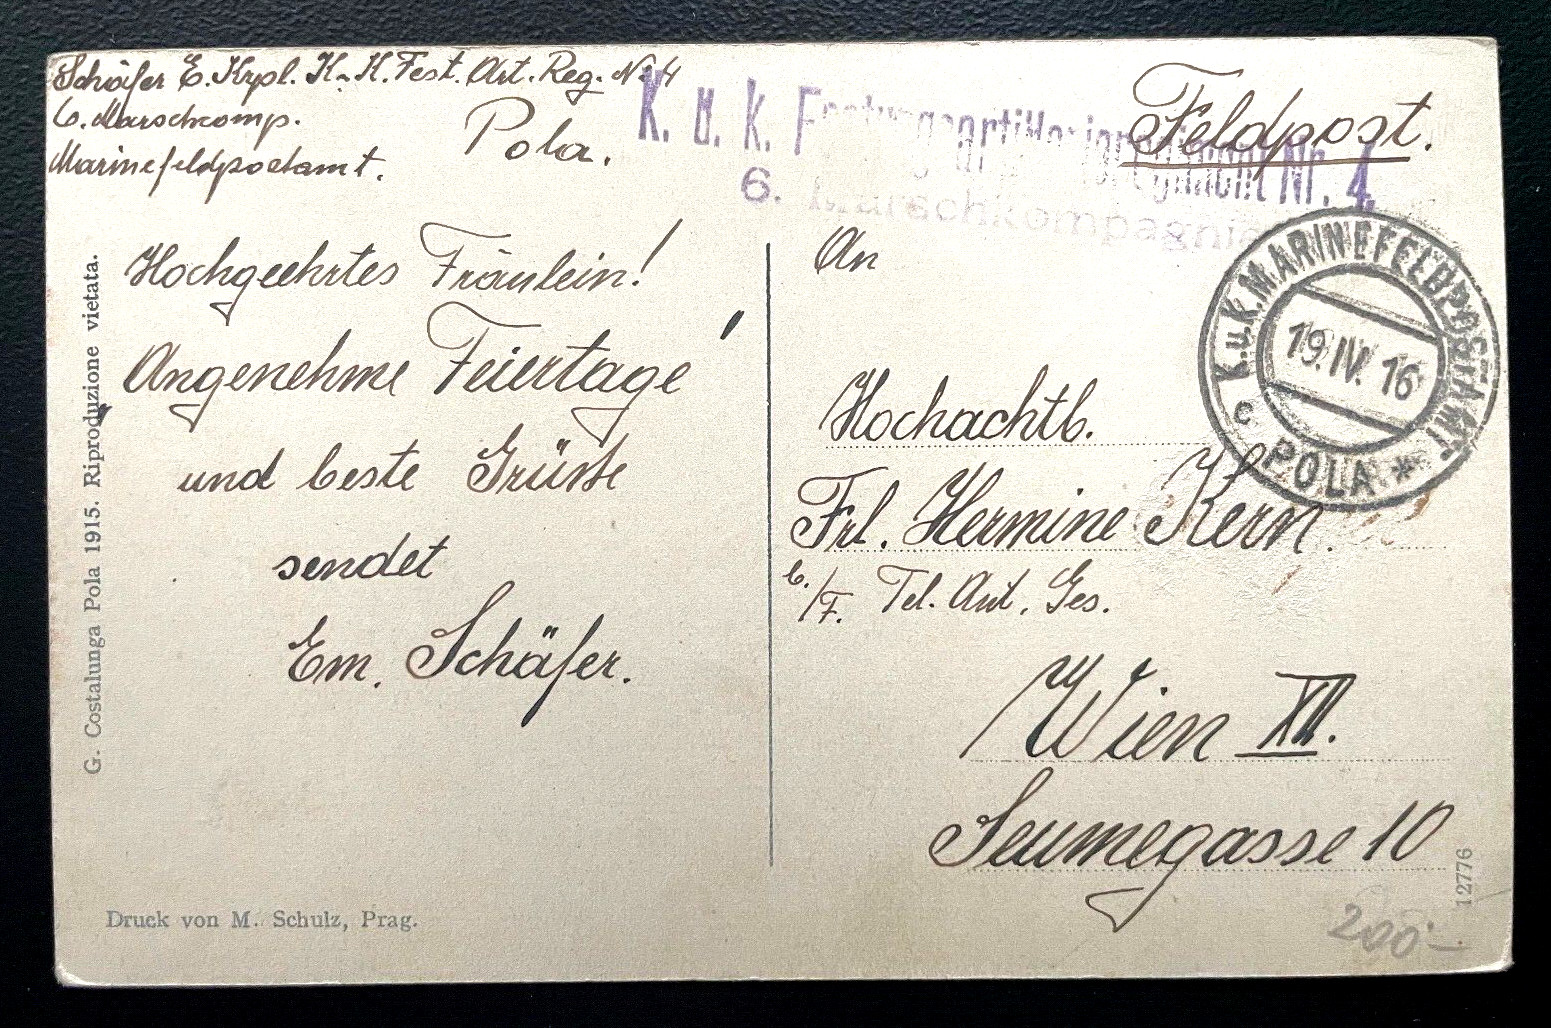 Schäfer E. Krpl. K. K. Fest. Art. Reg. No 4
6. Marschcomp.
Pola.
Marinefeldpostamt.
K. u. k. Festungsartillerieregiment Nr. 4.
6. Marschkompagnie
Feldpost.
K.u.K. MARINEFELDPOSTAMT
19.IV.16
c POLA *
Hochgeehrtes Fräulein!
Angenehme Feiertage
und beste Grüsse
sendet
Em. Schäfer.
An
Hochachtb.
Frl. Hermine Kern.
b./F. Tel. Aut. Ges.
Wien XII.
Seumegasse 10
G. Costalunga Pola 1915. Riproduzione vietata.
Druck von M. Schulz, Prag.
12776
200.-